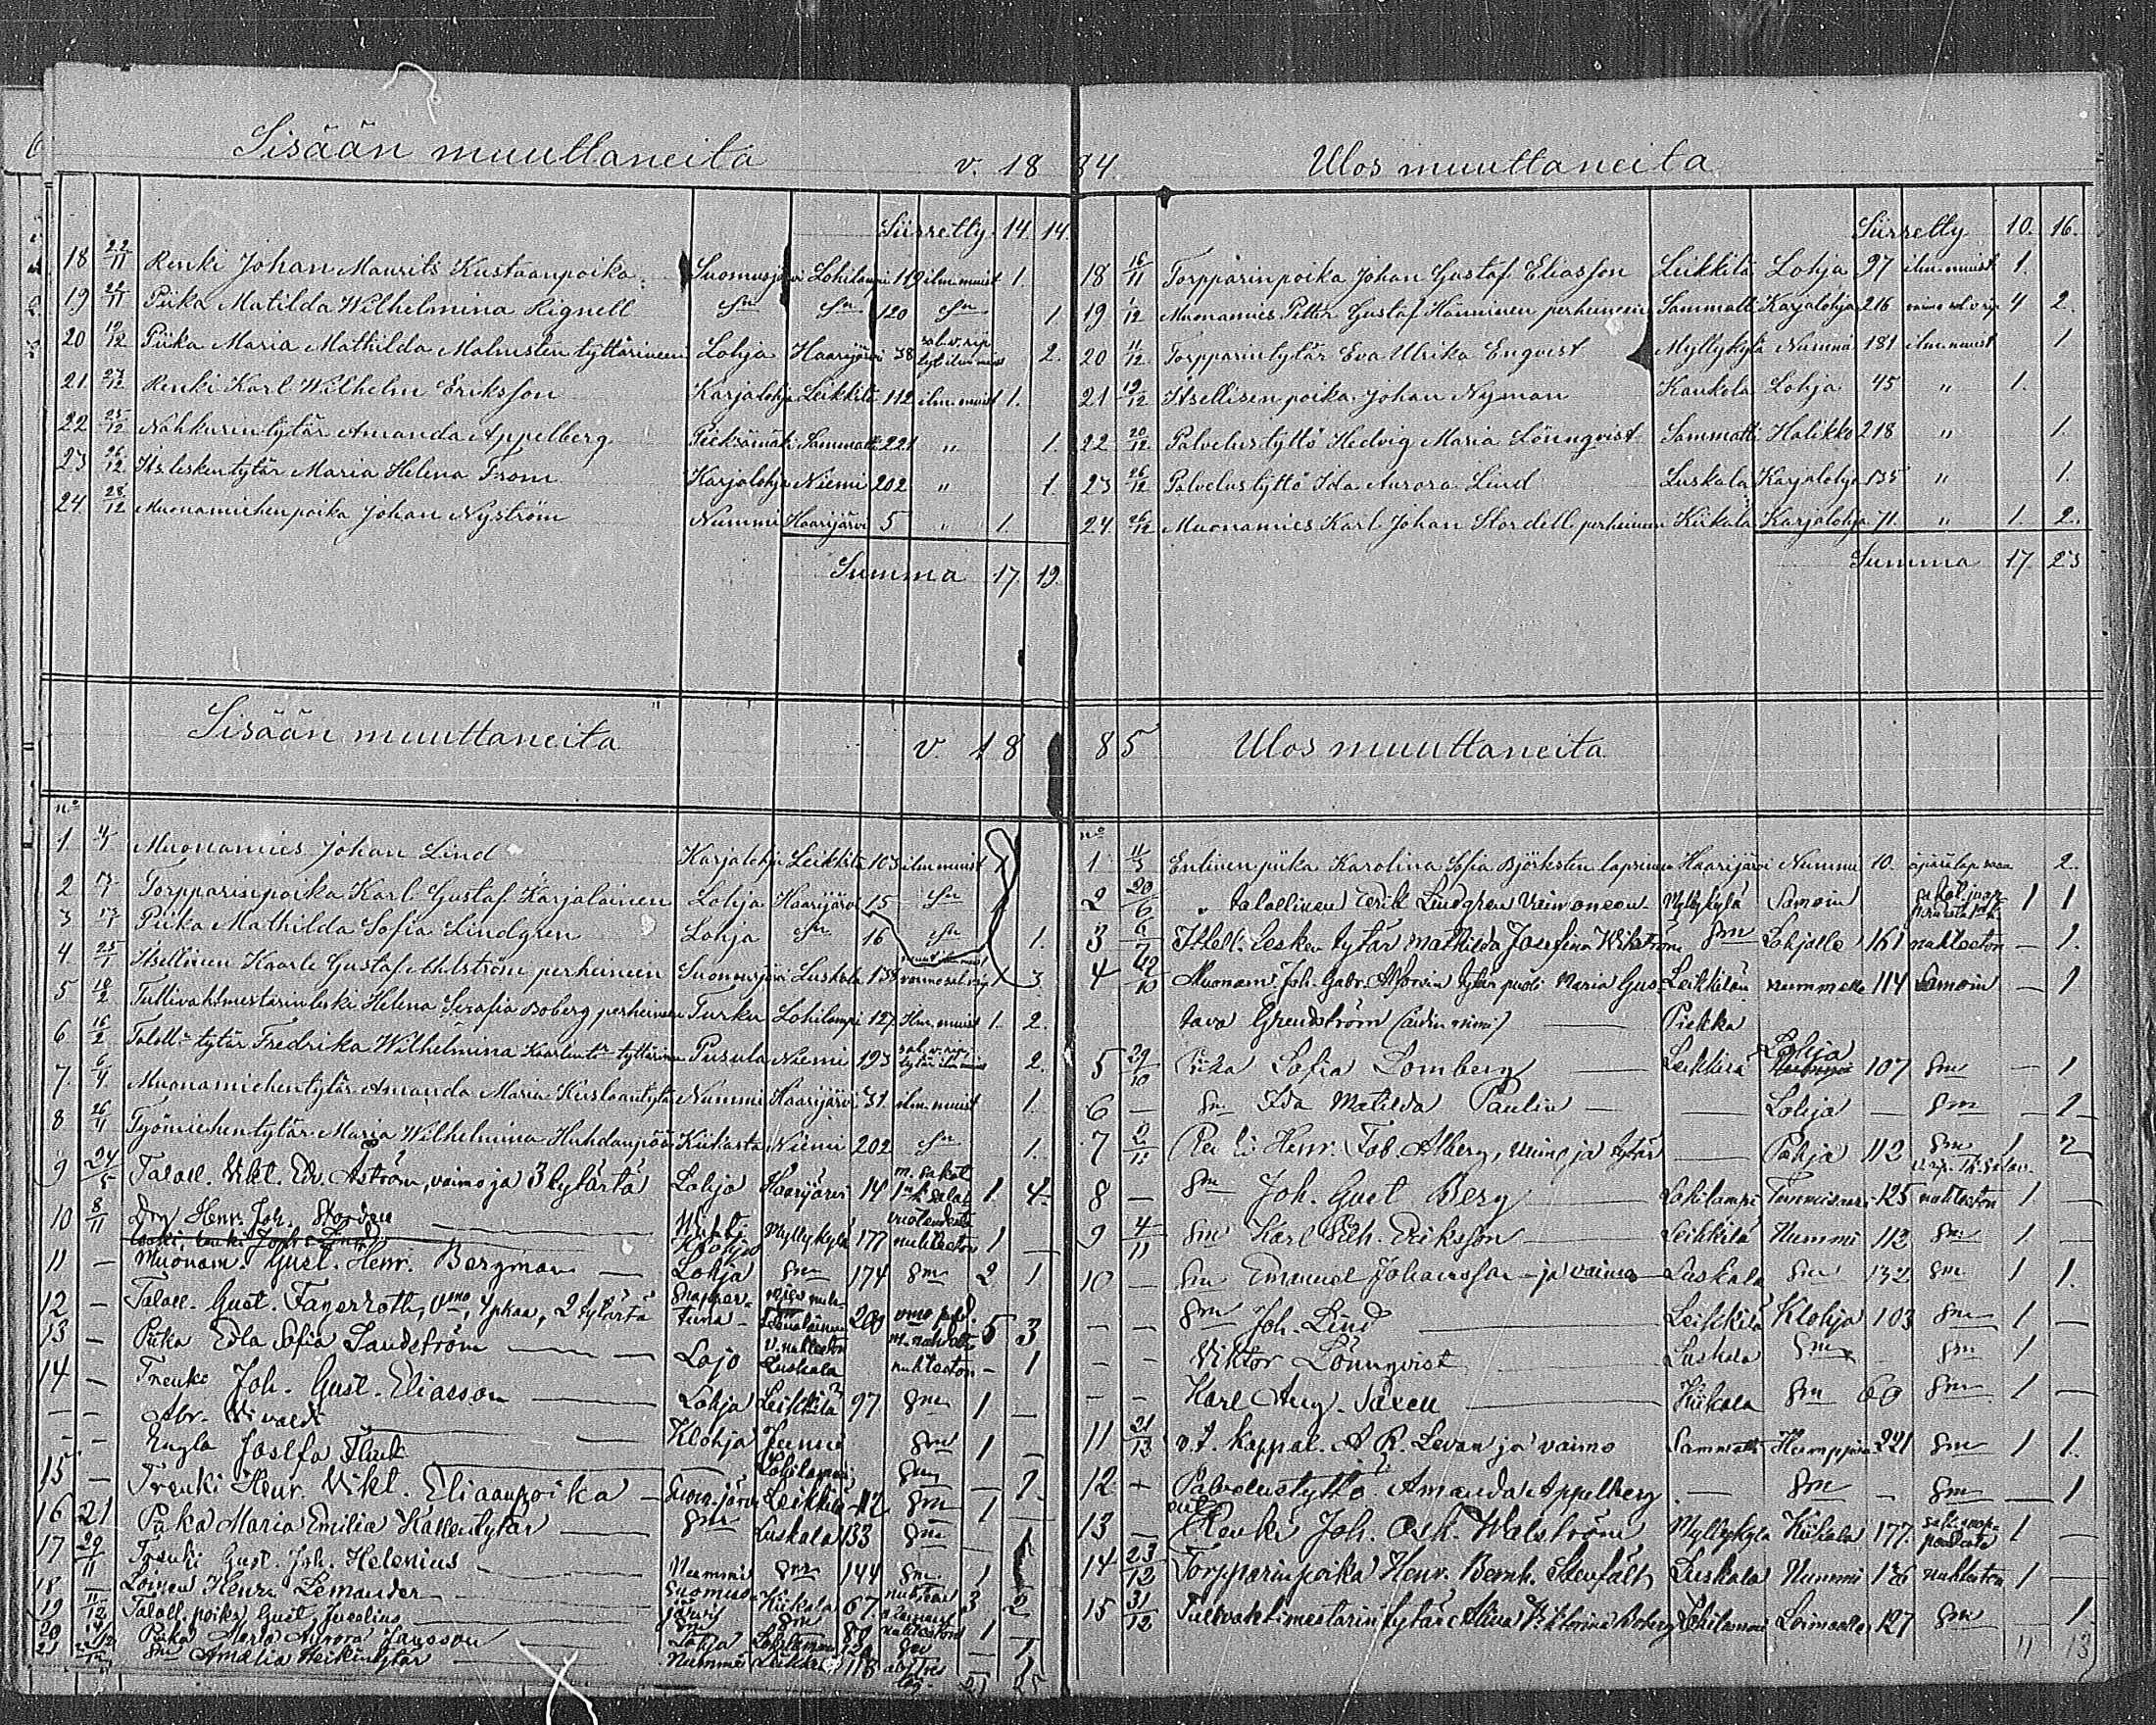 Sisään muuttaneita v. 18
Siirretty 14. 14.
18 22/11 Renki Johan Maurits Kustaanpoika Suomusjärvi Lohilampi 119 ilm. muist 1.
19 22/11 Piika Matilda Wilhelmina Rignell Sm Sm 120 Sm 1.
20 19/12 Piika Maria Mathilda Malmsten tyttärineen Lohja Haarijärvi 38 sal. v. rip. 2.
21. 27/12 Renki Karl Wilhelm Eriksson Karjalohja Leikkilä 112 ilm. muist 1.
22 25/12 Nahkurintytär Amanda Appelberg Pieksämäki Sammatti 221 " 1.
23 26/12 Its. leskentytär Maria Helena From Karjalohja Niemi 202 " 1.
24. 28/12 Muonamiehenpoika Johan Nyström Nummi Haarijärvi 5 " 1.
Summa 17. 19.
Sisään muuttaneita v. 18
no
1 4/1 Muonamies Johan Lind Karjalohja Leikkilä 103 ilm muist
2 17/1 Torpparinpoika Karl Gustaf Karjalainen Lohja Haarijärvi 15 Sm
3 17/1 Piika Mathilda Sofia Lindgren Lohja Sm 16 Sm 1.
4 25/1 Itsellinen Kaarle Gustaf Ahlström perheineen Suomusjärvi Luskala 138 3
5 10/2 Tullivahtmestarinleski Helena Serafia Boberg perheineen Turku Lohilampi 127. Ilm. muist 1. 2.
6 16/2 Taloll. tytär Fredrika Wilhelmina Kaarlentr tyttärineen Pusula Niemi 193 sal. v. rip. 2.
7. 6/4 Muonamiehentytär Amanda Maria Kustaantytär Nummi Haarijärvi 31. ilm. muist 1.
8 26/4 Työmiehentytär Maria Wilhelmina Huhdanpää Kiikasta Niemi 202 Sm 1.
9 24/5 Talall. Vikt. Edv. Åström, vaimo ja 3 tytärtä Lohja Haarijärvi 14 1. 4
10 8/11 Drg Henr. Joh. Myllykylä 177 nuhteeton 1 —
11 — Muonam. Gust. Henr. Bergman Lohja Sm 174 Sm 2 1
12 — Talall. Gust. Fagerroth, vmo, 4 pkaa, 2 tytärtä 5 3
13 — Piika Edla Sofia Sandström Lojo Luskala nuhteeton — 1
14 — Joh. Gust. Eliasson Lohja Leikkilä 97 Sm 1 —
— — Abr. Klohja Sm 1 —
— — Engla Josefa Lohilampi Sm 1
15 — Trenki Henr. Vikt. Eliaanpoika Suomusjärvi Leikkilä 112 Sm 1 —
16 21 Piika Maria Emilia Kallentytär Sm Luskala 133 Sm 1
17 29/11 Trenki Gust. Joh. Helenius Nummi Sm 144 Sm 1
18 — Loinen Henr. Lemander Suomusjärvi Kiikala 67. 3 2
19 11/12 Talall. poika Gust. Sm Sm 80 nuhteeton 1
20 Piika Maria Aurora Jansson Lohja Lohilampi 120 Sm — 1
21 Sm Amalia Heikintytär Nummi Leikkilä 118 — 1
84. Ulos muuttaneita
Siirretty 10. 16.
18 16/11 Torpparinpoika Johan Gustaf Eliasson Leikkilä Lohja 97 ilm. muist 1.
19 1/12 Muonamies Petter Gustaf Hänninen perheineen Sammatti Karjalohja 216 4 2.
20 11/12 Torpparintytär Eva Ulrika Enqvist Myllykylä Nummi 181 ilm. muist 1
21 19/12 Itsellisen poika Johan Nyman Kaukola Lohja 45 " 1.
22 20/12. Palvelustyttö Hedvig Maria Lönnqvist Sammatti Halikko 218 " 1.
23 26/12 Palvelustyttö Ida Aurora Lind Luskala Karjalohja 135 " 1.
24. 26/12 Muonamies Karl Johan Stordell perheineen Kiikala Karjalohja 71. " 1. 2.
Summa 17. 23
85 Ulos muuttaneita
no
1 11/3 Entinen piika Karolina Sofia Björksten lapsineen Haarijärvi Nummi 10. 2.
2 20/6 talollinen Erik Lindgren vaimoneen Myllykylä Samoin 1 1
3 Itsell. Lesken tytär Mathilda Josefina Wikström Sm Lohjalle 161 nuhteeton — 1.
4 12/10 Muonam. Joh. Gabr. Alforsin tytär puoli Maria Gus- Leikkilän Nummelle 114 Samoin — 1
tava Grendström (äidin nimi) Piekka
5 29/10 Piika Sofia Lomberg Leikkilä Lohja 107 Sm — 1
6 — Sm Ida Matilda Paulin — Lohja — Sm — 1
7 2/11 Renki Henr. Fab. Alberg, vaimo ja tytär — Pohja 112 Sm 1 2
8 — Sm Joh. Gust Berg Lohilampi Tammisaari 125 nuhteeton 1 —
9 4/11 Sm Karl Vilh. Eriksson Leikkilä Nummi 112 Sm 1 —
10 — Sm Emanuel Johansson ja vaimo Luskala Sm 132 Sm 1 1.
— — Sm Joh. Lind Leikkilä Klohja 103 Sm 1 —
— — Viktor Lönnqvist Luskala Sm — Sm 1 —
— — Karl Aug. Saxen Kiikala Sm 60 Sm 1 —
11 21/12 v.t. Kappal. A. R. Levan ja vaimo Sammatti Humppila 221 Sm 1 1.
12 — Palvelustyttö Amanda Appelberg — Sm — Sm — 1
13 — Renki Joh. Osk. Walström Myllykylä Kiikala 177. 1 —
14 23/12 Torpparinpoika Henr. Bernh. Stenfält Luskala Nummi 136 nuhteeton 1 —
15 31/12 Tullivahtimestarin tytär Alma Viktorina Boberg Lohilampi Loimaalle 127 Sm — 1.
11 13